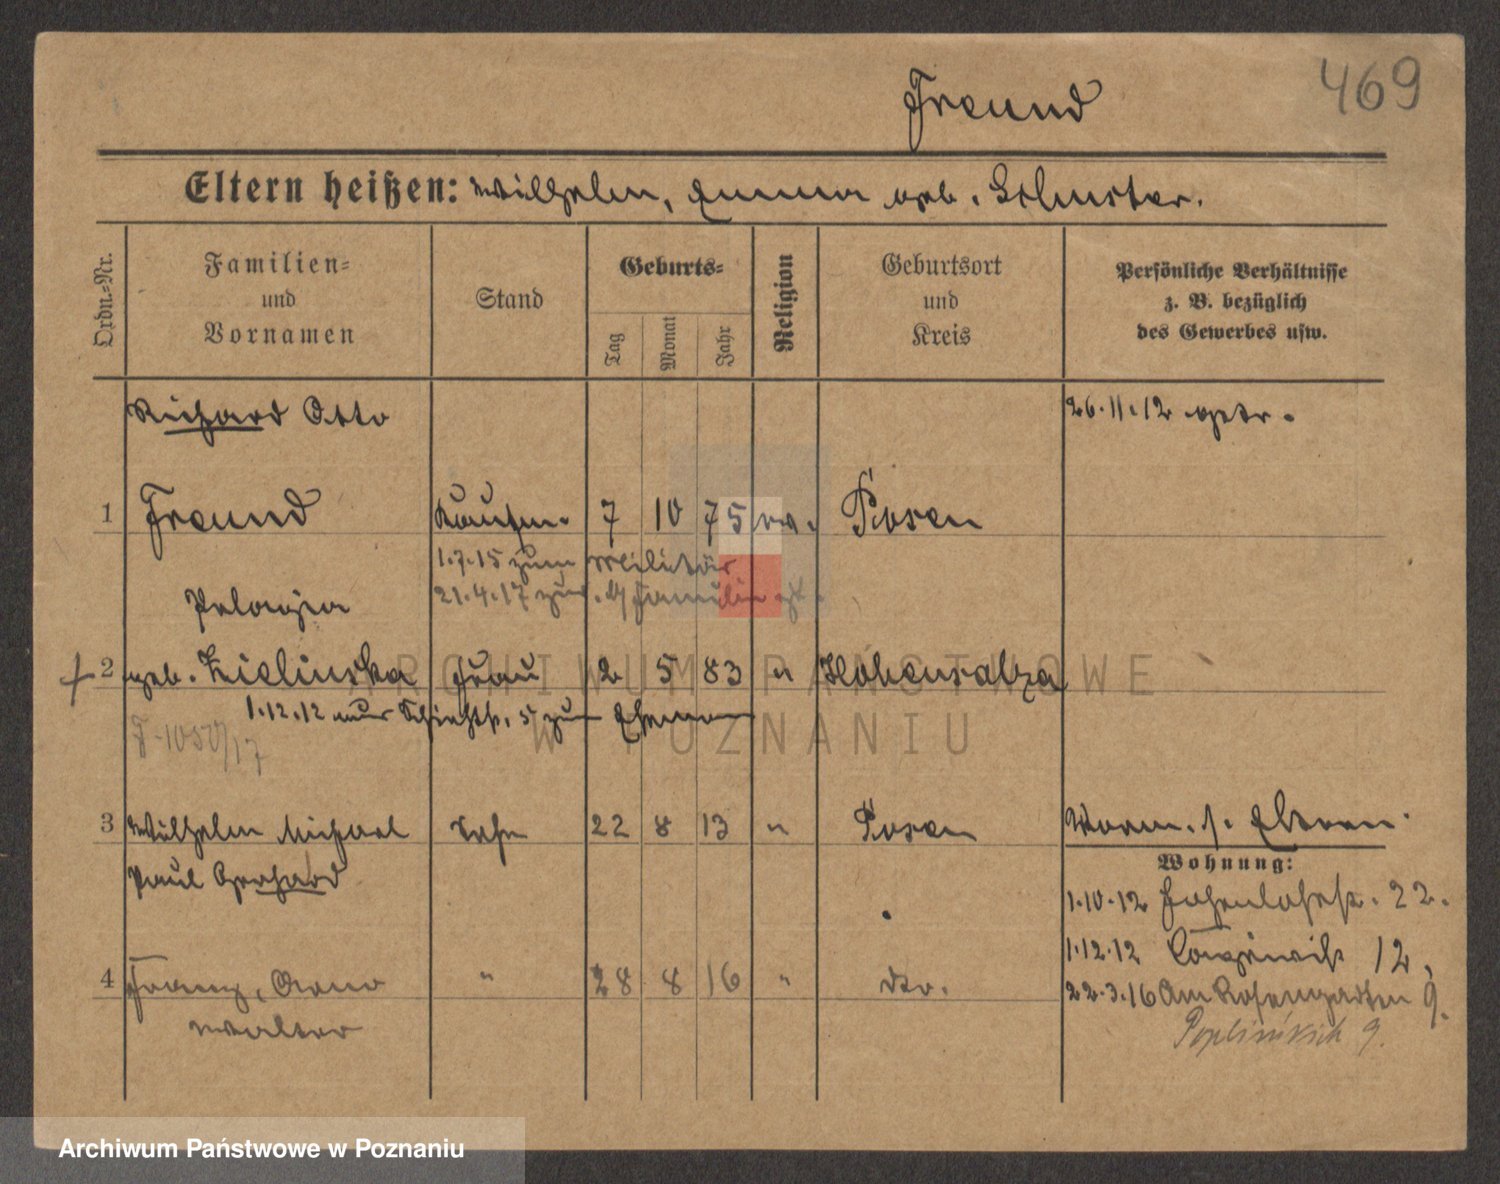 469
Freund
Eltern heißen: Wilhelm, Emma geb. Schuster.
Ordn.-Nr.
Familien-
und
Vornamen
Stand
Geburts-
Tag
Monat
Jahr
Religion
Geburtsort
und
Kreis
Persönliche Verhältnisse
z. B. bezüglich
des Gewerbes usw.
Richard Otto
26.11.12 getr.
1 Freund Kaufm. 7 10 75 ev. Posen
1.7.15 zum Militär
21.4.17 zur Familie
Pelagia
2 geb. Zielinska Frau 2 5 83 " Hohensalza
1.12.12 5 zum Ehemann
3 Wilhelm Michael Sohn 22 8 13 " Posen
Paul Gerhard
Worm. s. Eltern.
Wohnung:
1.10.12 Hohenlohestr. 22.
1.12.12 12,
4 Franz, Arno " 28 8 16 " do.
Walter
22.3.16 Am Rosengarten 9.
Poplińskich 9.
ARCHIWUM PAŃSTWOWE
W POZNANIU
Archiwum Państwowe w Poznaniu